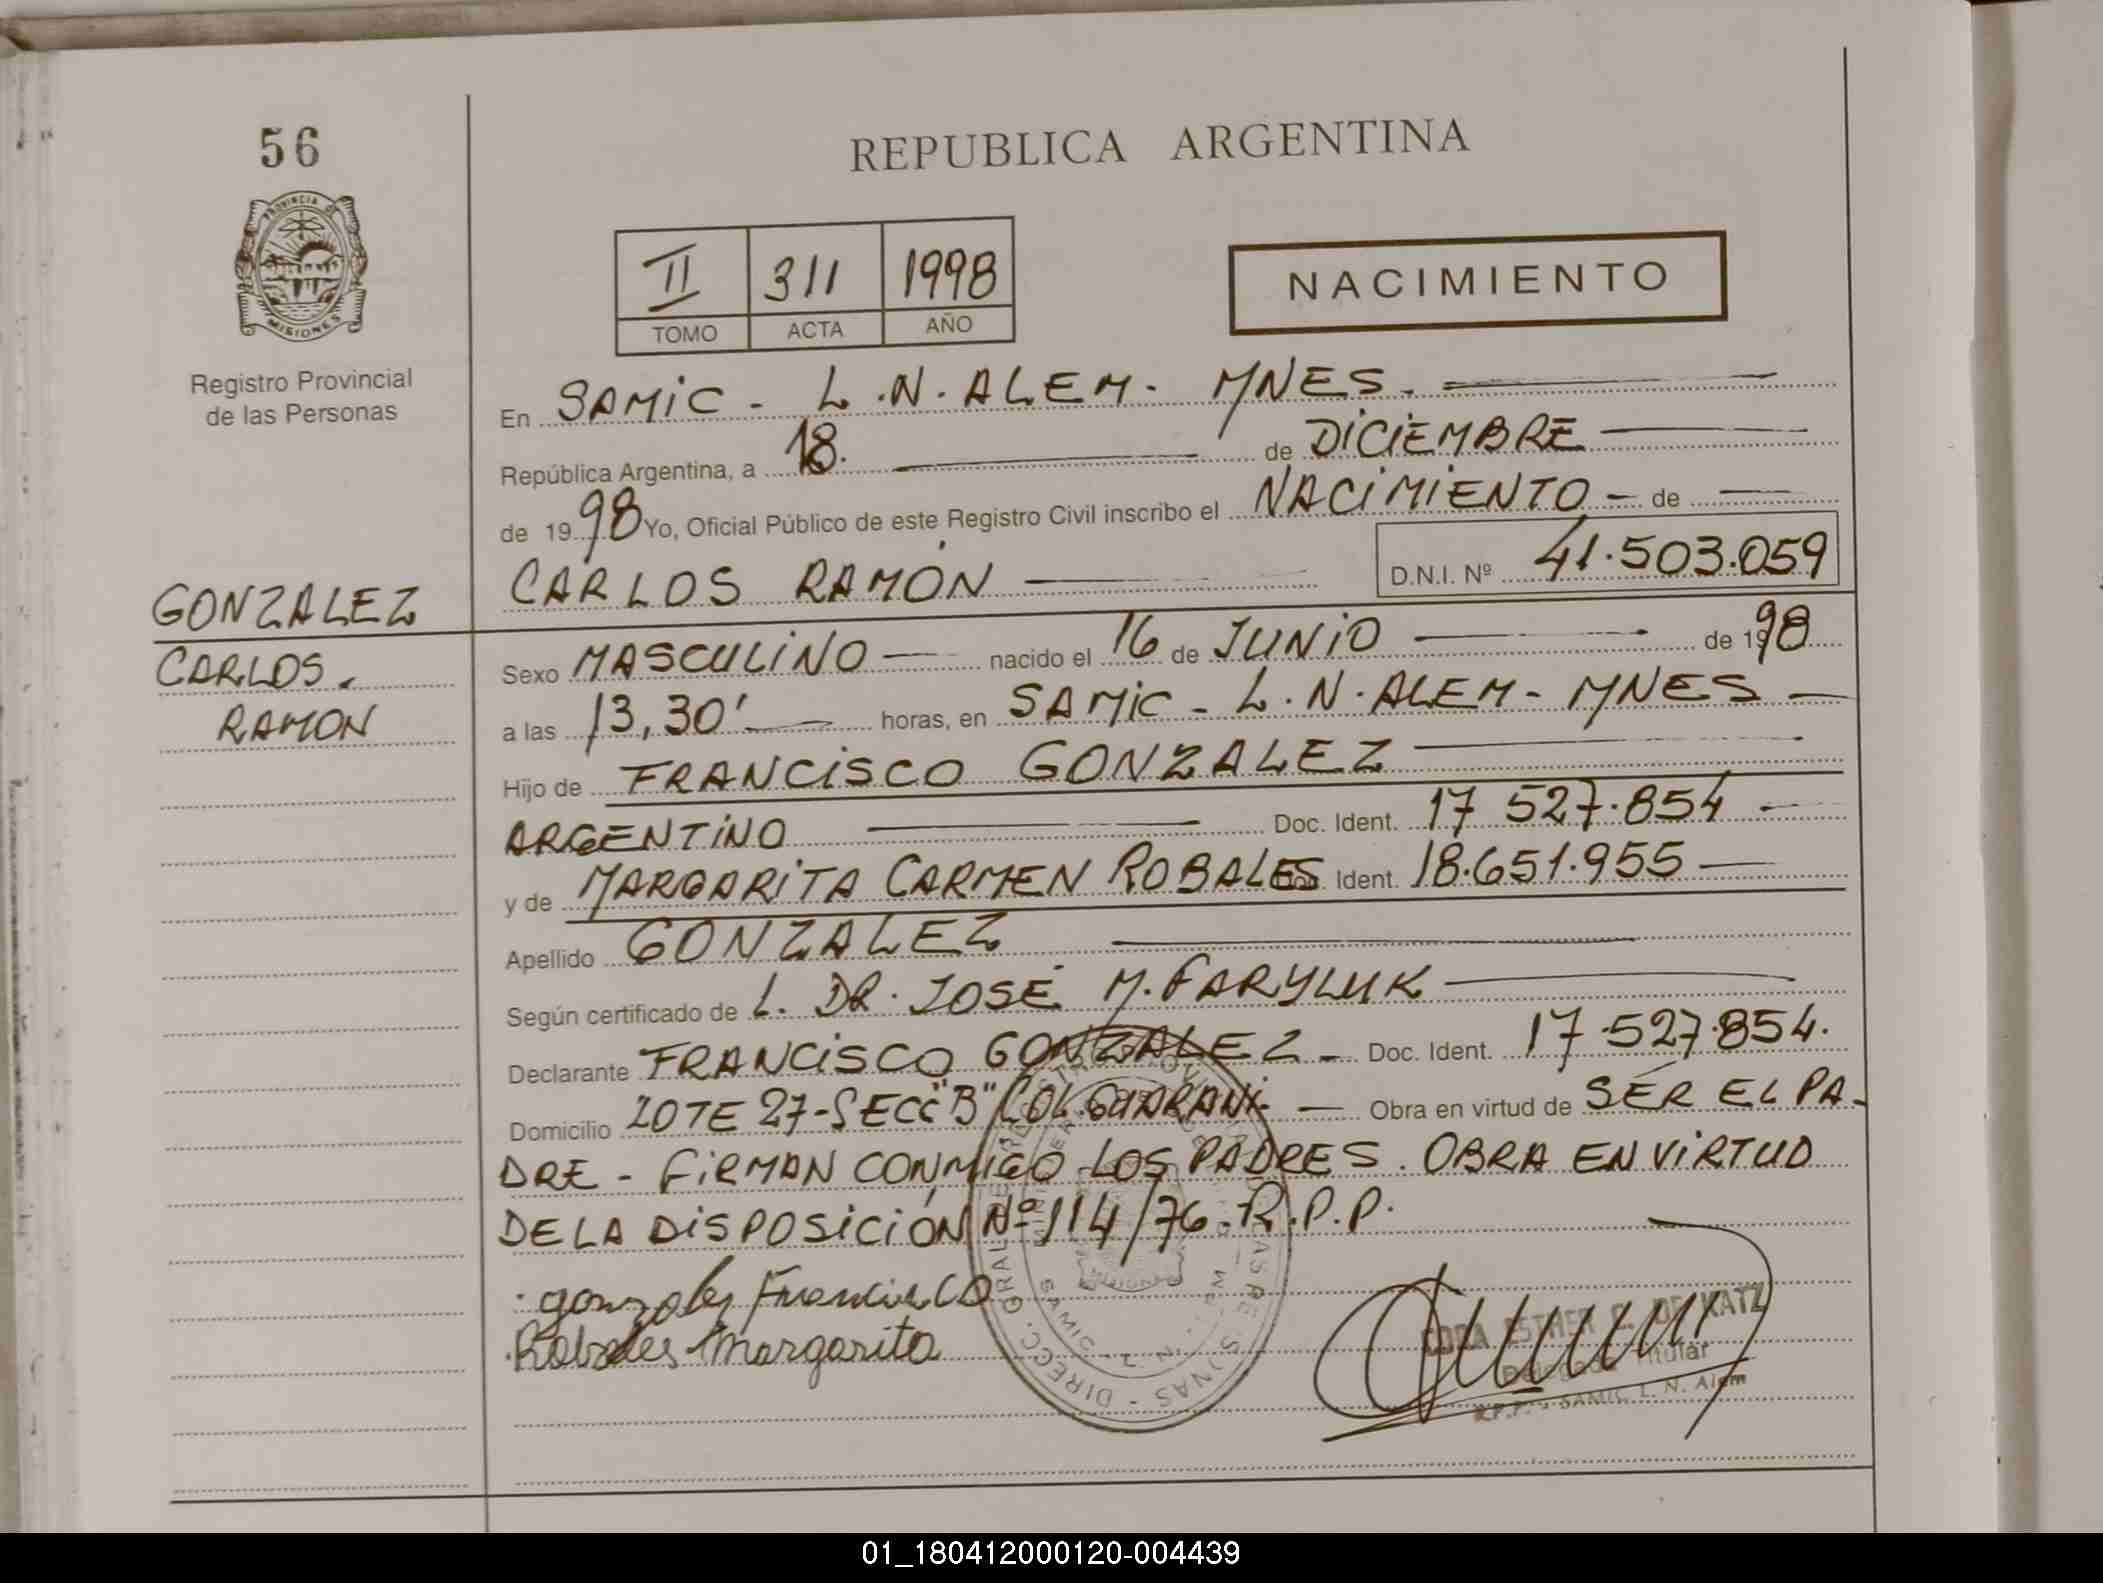 56
REPUBLICA ARGENTINA
PROVINCIA DE
MISIONES
Registro Provincial
de las Personas
II 311 1998
TOMO ACTA AÑO
NACIMIENTO
En SAMIC - L.N. ALEM - MNES.
República Argentina, a 18. de DICIEMBRE
de 1998 Yo, Oficial Público de este Registro Civil inscribo el NACIMIENTO - de
CARLOS RAMÓN D.N.I. Nº 41.503.059
GONZALEZ
CARLOS.
RAMON
Sexo MASCULINO nacido el 16 de JUNIO de 1998
a las 13,30' horas, en SAMIC - L.N. ALEM - MNES
Hijo de FRANCISCO GONZALEZ
ARGENTINO Doc. Ident. 17 527.854
y de MARGARITA CARMEN ROBALES Doc. Ident. 18.651.955
Apellido GONZALEZ
Según certificado de L. DR. JOSÉ M. FARYLUK
Declarante FRANCISCO GONZALEZ - Doc. Ident. 17.527.854.
Domicilio LOTE 27-SECC "B" COL. GUARANI - Obra en virtud de SER EL PA-
DRE - FIRMAN CONMIGO LOS PADRES. OBRA EN VIRTUD
DE LA DISPOSICIÓN Nº 114/76. R.P.P.
gonzales Francisco
Robales Margarita
ESTHER DE KATZ
Titular
R.P.P. - SAMIC. L. N. Alem
01_180412000120-004439